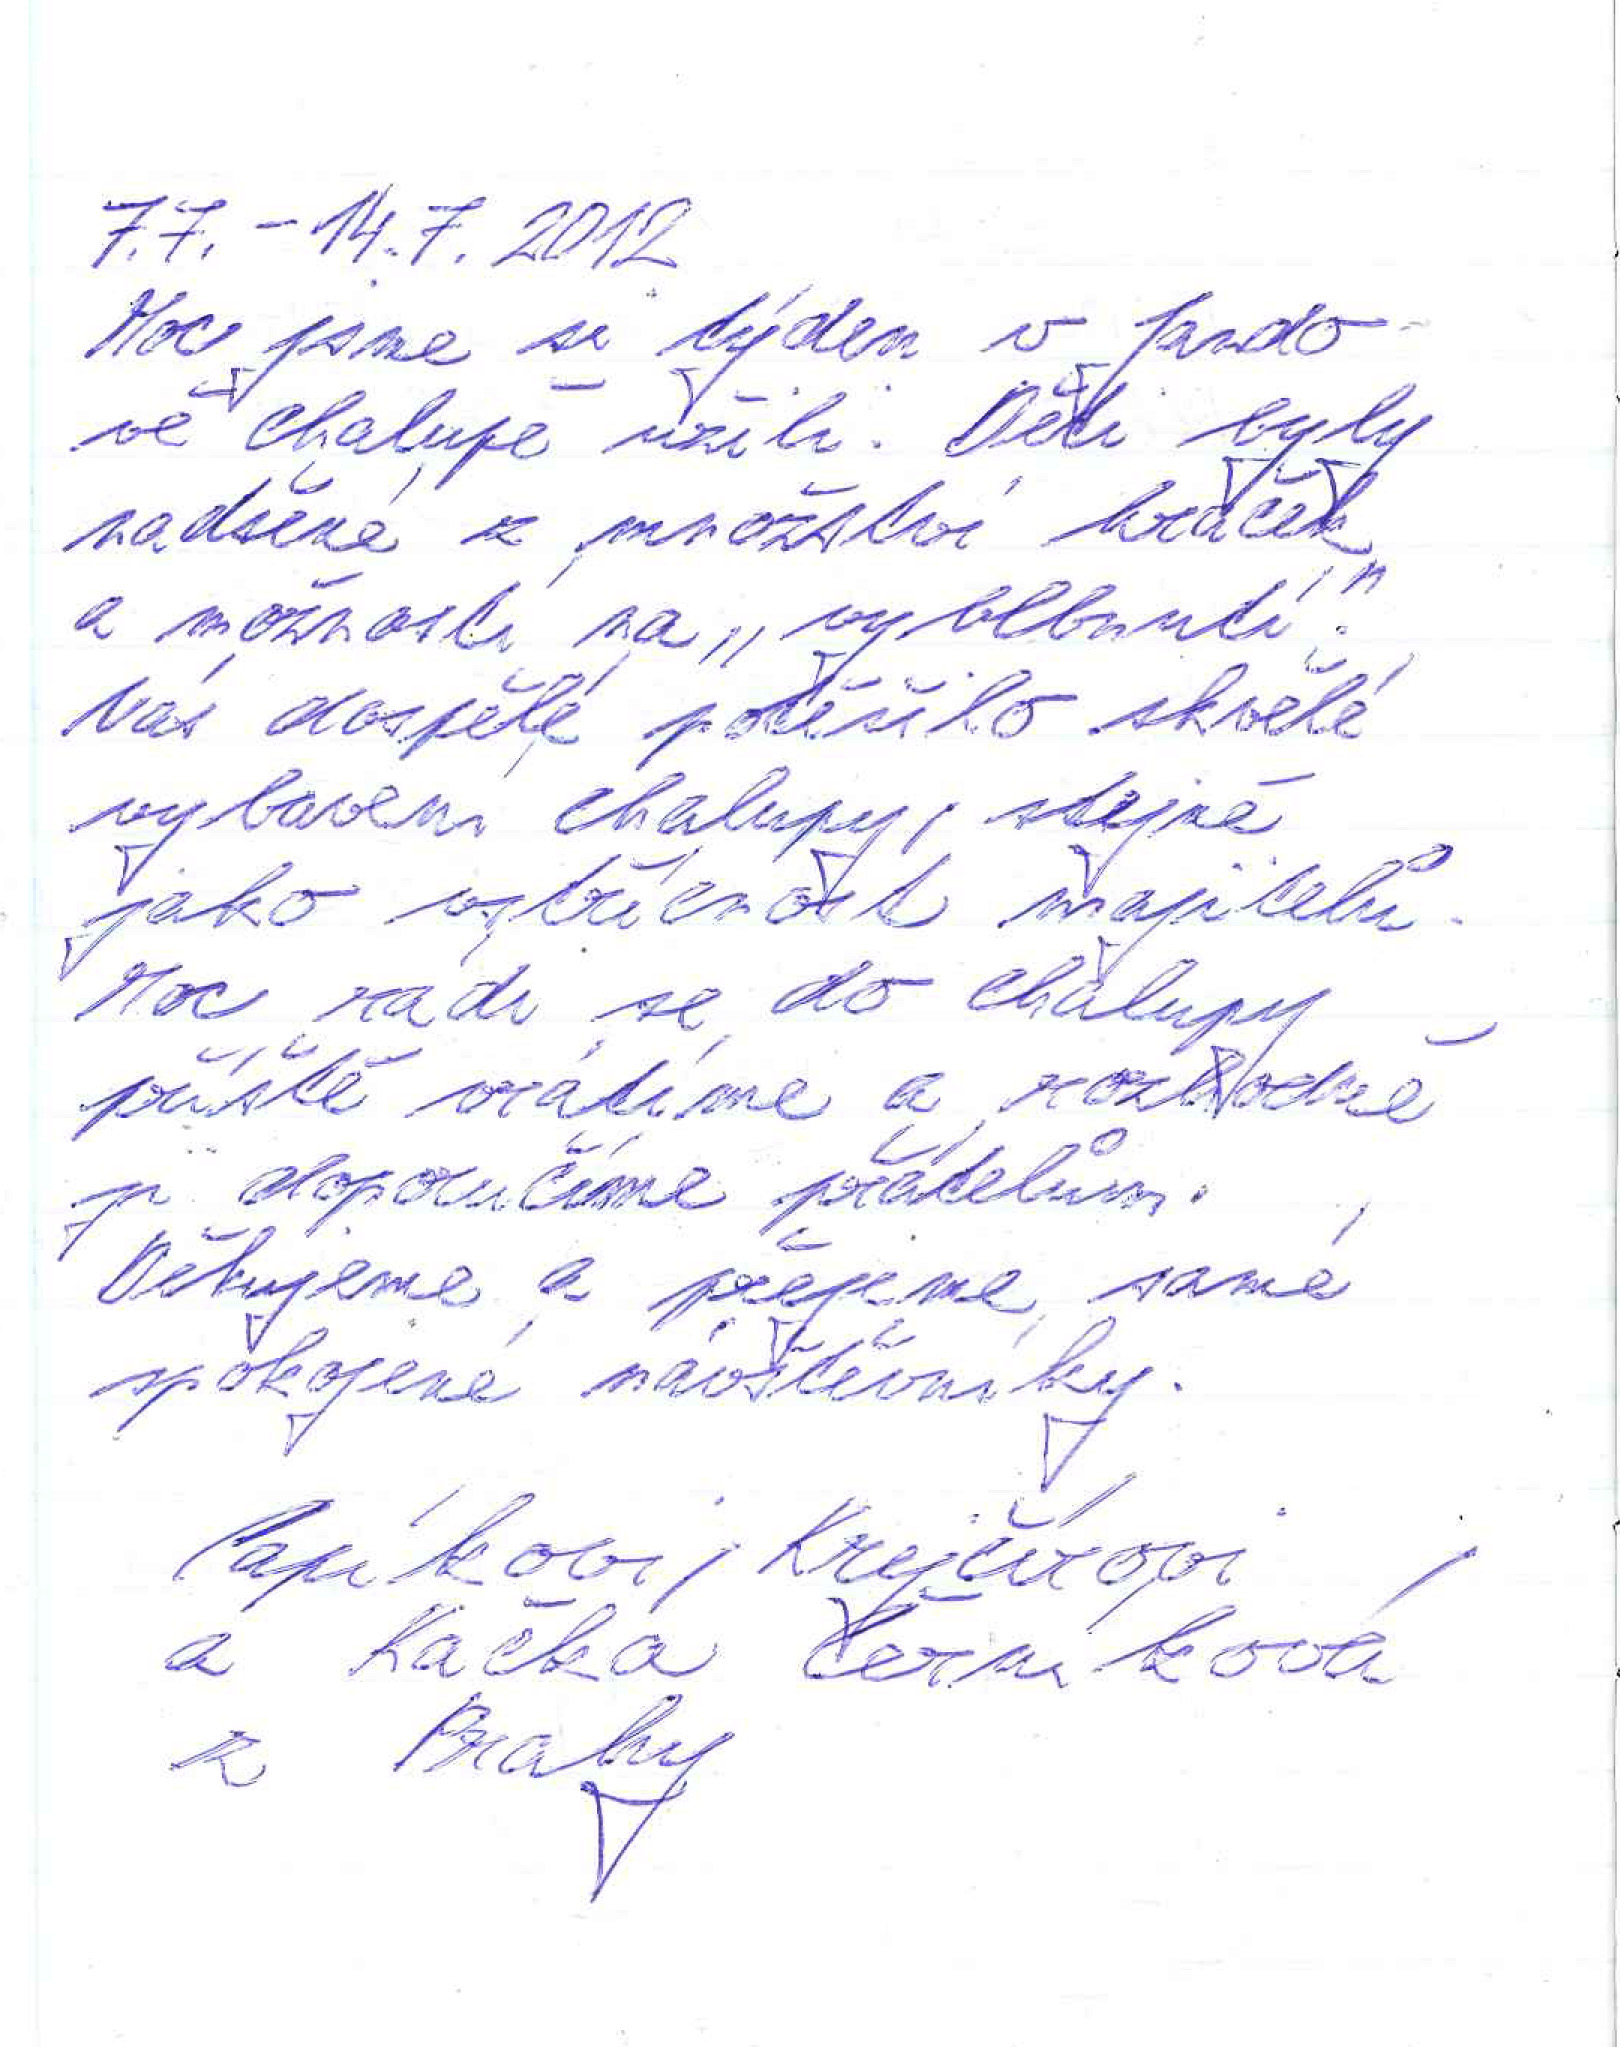 7.7. - 14.7. 2012
Moc jsme si týden v Jando-
vě chalupě užili. Děti byly
nadšené z množství hraček
a možnosti na „vyblbnutí".
Nás dospělé potěšilo skvělé
vybavení chalupy, stejně
jako vstřícnost majitelů.
Moc rádi se do chalupy
příště vrátíme a rozhodně
ji doporučíme přátelům.
Děkujeme a přejeme samé
spokojené návštěvníky.
Papíkovi, Krejčírovi
a Kačka Černíková
z Prahy